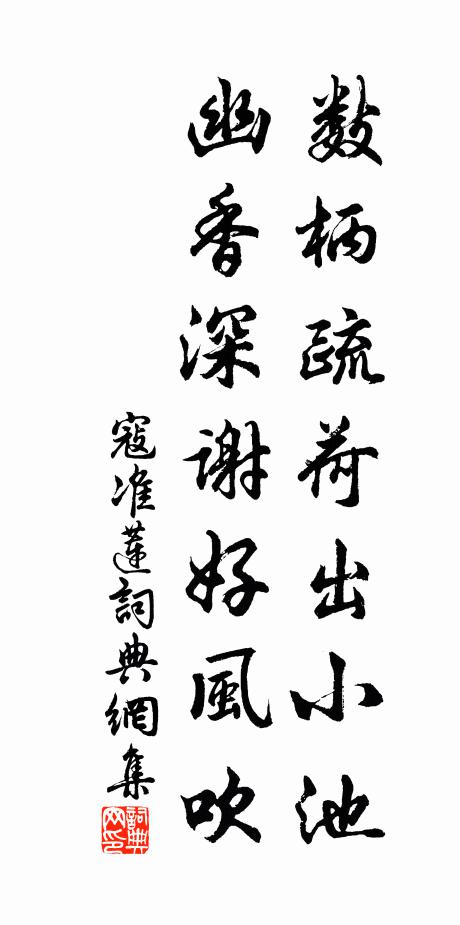 数柄疏荷出小池
幽香深谢好風吹
寇准蓮詞典網集
詞典
网印